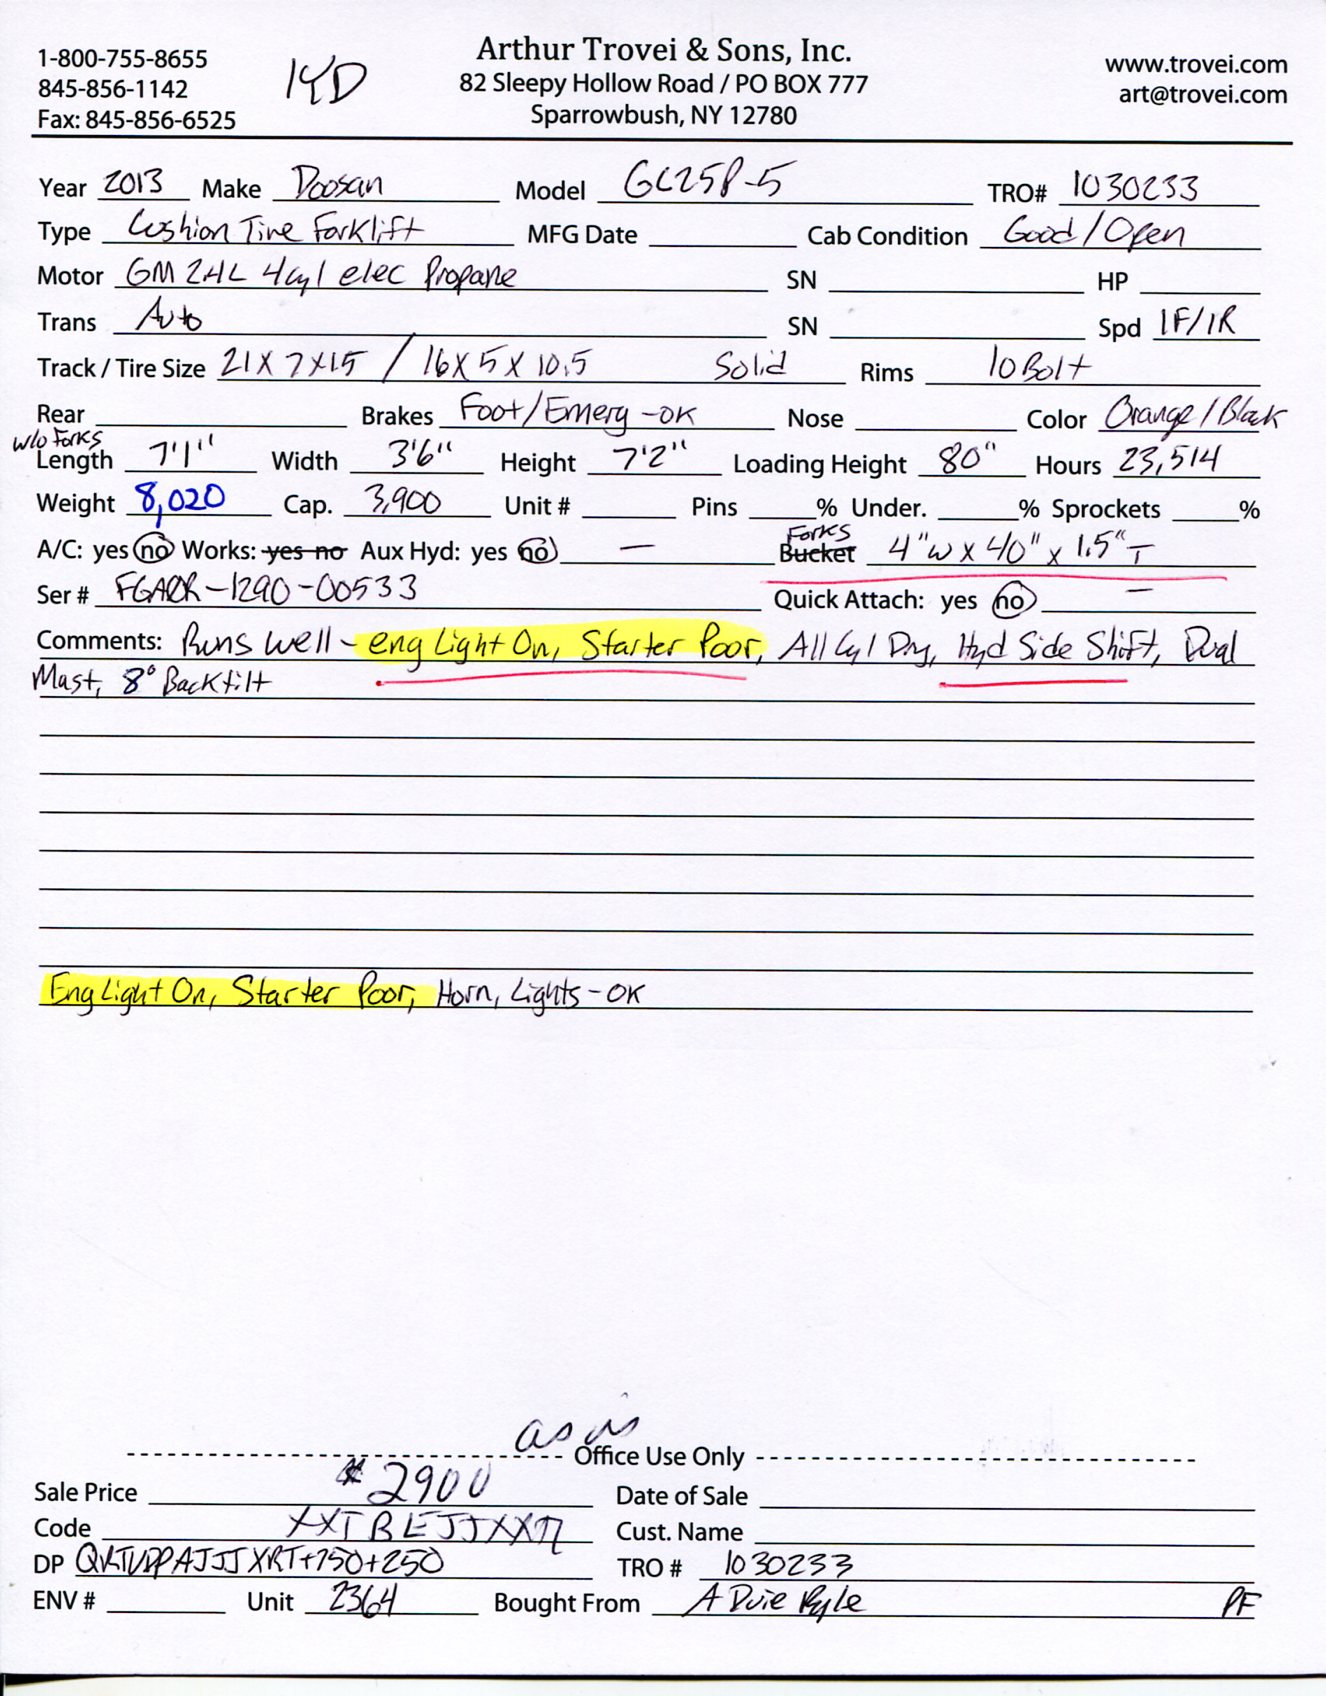 1-800-755-8655
845-856-1142
Fax: 845-856-6525
KD
Arthur Trovei & Sons, Inc.
82 Sleepy Hollow Road / PO BOX 777
Sparrowbush, NY 12780
www.trovei.com
art@trovei.com
Year 2013 Make Doosan Model GC25P-5 TRO# 1030233
Type Cushion Tire Forklift MFG Date Cab Condition Good/Open
Motor GM 2.4L 4cyl elec Propane SN HP
Trans Auto SN Spd 1F/1R
Track / Tire Size 21X7X15 / 16X5X10.5 Solid Rims 10 Bolt
Rear Brakes Foot/Emerg-OK Nose Color Orange/Black
w/o Forks
Length 7'1" Width 3'6" Height 7'2" Loading Height 80" Hours 23,514
Weight 8,020 Cap. 3,900 Unit # Pins % Under. % Sprockets %
Forks
A/C: yes no Works: yes no Aux Hyd: yes no — Bucket 4"W x 40" x 1.5"T
Ser # FGA0R-1290-00533 Quick Attach: yes no —
Comments: Runs Well - eng Light On, Starter Poor, All Cyl Dry, Hyd Side Shift, Dual
Mast, 8° Backtilt
Eng Light On, Starter Poor, Horn, Lights - OK
as is
Office Use Only
Sale Price $2900 Date of Sale
Code Cust. Name
DP TRO # 1030233
ENV # Unit 2364 Bought From A Duie Pyle PF